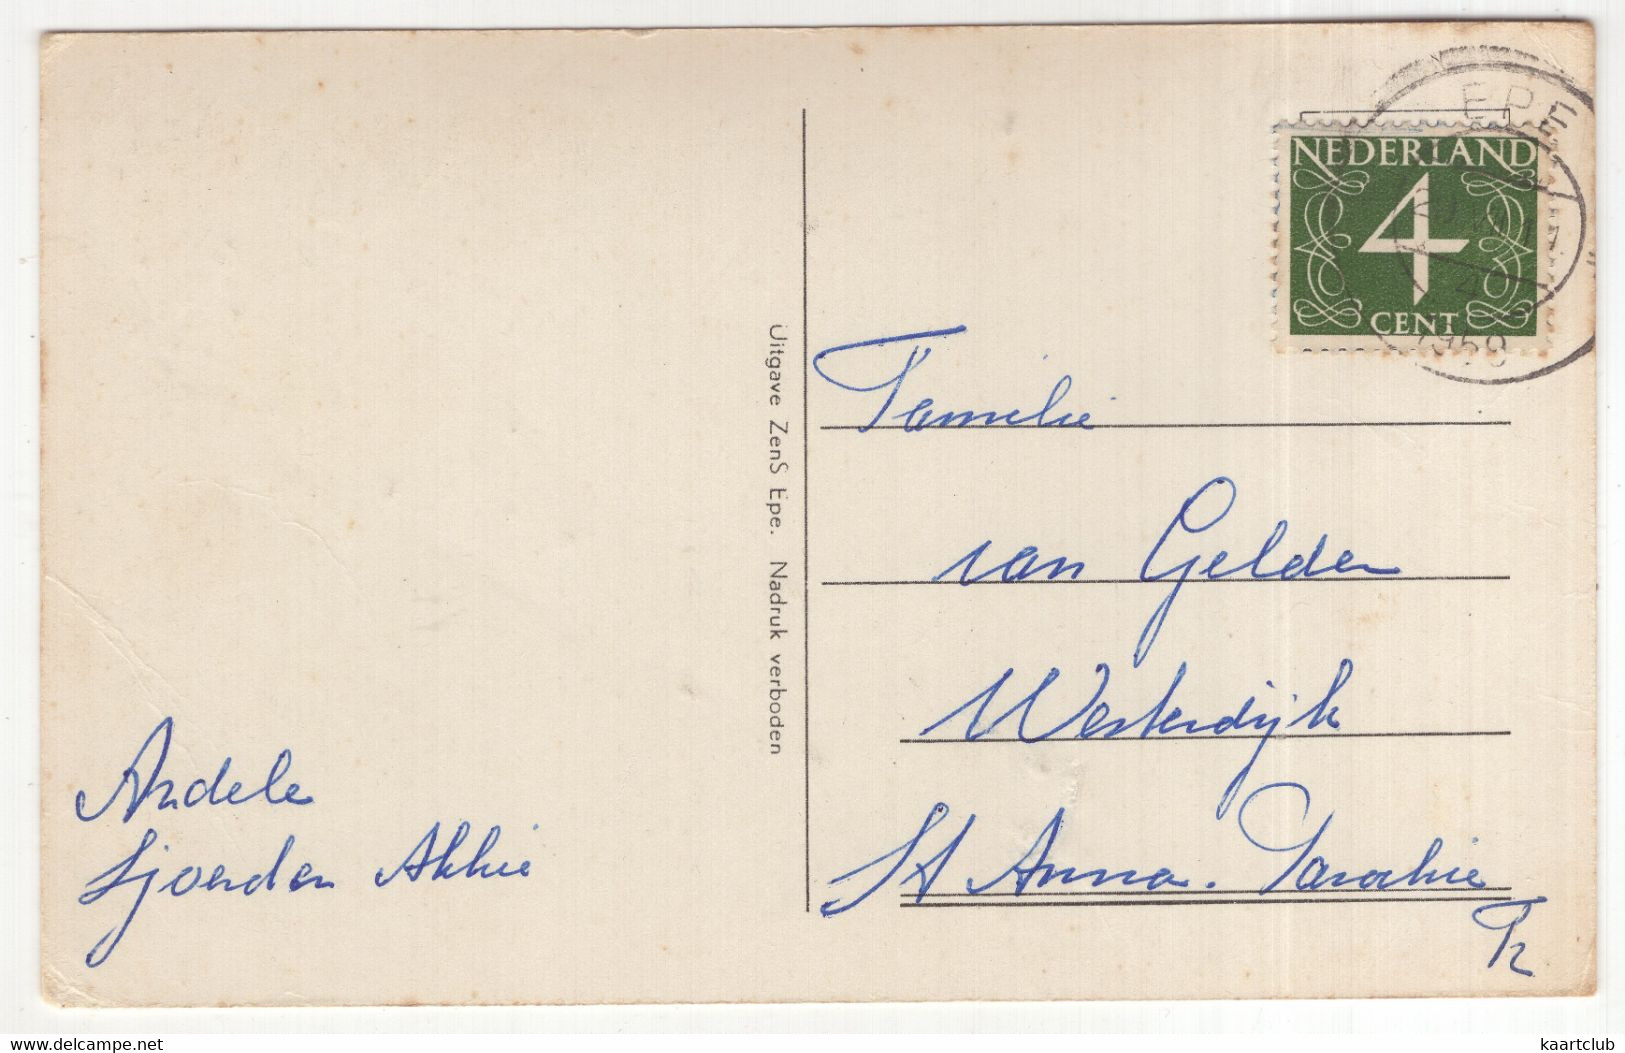 EPE
NEDERLAND
4
CENT
1958
Familie
van Gelder
Westerdijk
St Anna. Parochie
Fr
Andele
Sjoerd en Akkie
Uitgave ZenS Epe. Nadruk verboden
www.delcampe.net
kaartclub